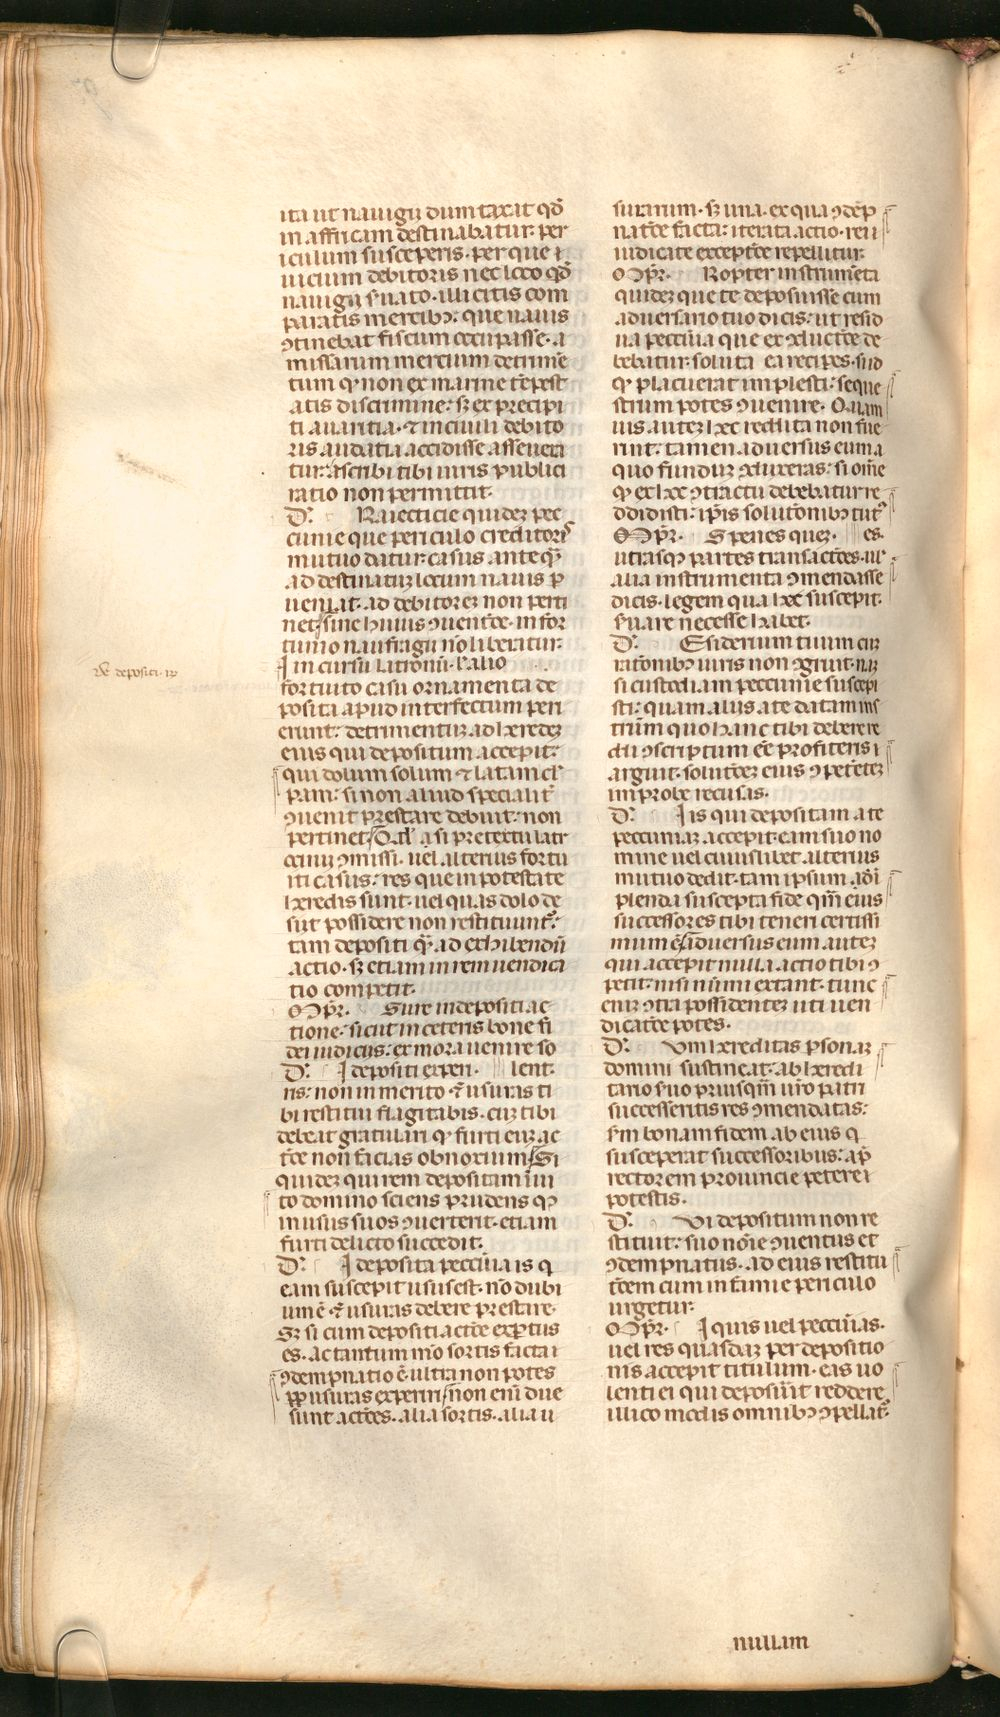 ita ut nauigii dumtaxat qđ
in affricam destinabatur per
iculum susceperis. per que i
iuicium debitoris nec loco qđ
nauigii suato. illicitis com
paratis mercibꝫ: que nauis
ꝯtinebat fiscum occupasse. a
missarum mercium detrimē
tum qꝫ non ex marine tēpest
atis discrimine: sꝫ ex precipi
ti auaritia. ⁊ inciuili debito
ris audatia accidisse assevera
tur: ascribi tibi iuris publici
ratio non permittit.
D'. Raiecticie quidez pec
cunie que periculo creditoris
mutuo datur: casus anteqꝫ
ad destinatuz locum nauis p
ueniat. ad debitorez non perti
net sine huius ꝯuentōe. infor
tunio naufragii nō liberatur.
I in cursu latronū. l' alio
fortuito casu ornamenta de
posita apud interfectum peri
erunt: detrimentuz ad heredez
eius qui depositum accepit:
qui dolum solum ⁊ latam cl'
pam: si non aliud specialit'
ꝯuenit prestare debuit: non
pertinet Qđ si pretextu latr
ocinii ꝯmissi. uel alterius fortu
iti casus: res que in potestate
heredis sunt. uel quas dolo de
siit possidere non restituunt':
tam depositi qꝫ ad exhibendū
actio. sꝫ etiam in rem uendica
tio competit.
Imp̄r. Sure in depositi ac
tione. sicut in ceteris bone fi
dei iudiciis: ex mora uenire so
D'. I depositi experi. lent.
ris: non inmerito ⁊ usuras ti
bi restitui flagitabis. cuz tibi
debeat gratulari qꝫ furti euz ac
tōe non facias obnoxium Si
quidez qui rem depositam inui
to domino sciens prudens qꝫ
in usus suos ꝯuerterit. etiam
furti delicto succedit.
D'. I deposita peccūia is q
eam suscepit usus est. nō dubi
um ē. ⁊ usuras debere prestare.
Sꝫ si cum depositi actōe exp̄tus
es. ac tantum m̄o sortis facta i
ꝯdempnatio ē. ultra non potes
pp̄ usuras experiri non eni due
sunt actōes. alia sortis. alia u
surarum. sꝫ una. ex qua ꝯdēp
natōe facta: iterata actio. rei i
iudicate exceptōe repellitur.
Imp̄r. Ropter instrumēta
quidez que te deposuisse cum
aduersario tuo dicis: ut resid
ua peccūia que ex ꝯductōe de
bebatur. soluta ea recipes. sud
qꝫ placuerat implesti: seque
strum potes ꝯuenire. Quam
uis autez hec reddita non fue
rint: tamen aduersus eum a
quo fundūz ꝯduxeras: si om̄e
qꝫ ex hoc ꝯtractu debebatur re
ddidisti: ip̄is solutōnibꝫ tut'
Imp̄r. S penes quez. es.
utrasqꝫ partes transactōes. ul'
alia instrumenta ꝯmendasse
dicis. legem qua hec suscepit.
suare necesse habet.
D'. Esiderium tuum cuz
ratōnibꝫ iuris non ꝯgruit. naz
si custodiam peccunie suscepi
sti: quam alius a te datam ins
trūm quo hanc tibi deberere
ddi ꝯscriptum eē profiteris i
arguit. solutōez eius ꝯpetētez
improbe recusas.
D'. Is qui depositam a te
peccuniaz accepit. eam suo no
mine uel cuiuslibet alterius
mutuo dedit. tam ipsum adī
plenda suscepta fide qm̄ eius
successores tibi teneri certissi
mum ē Aduersus eum autez
qui accepit nulla actio tibi ꝯ
petit: nisi nūmi extant. tunc
enīz ꝯtra possidentez uti uen
dicatōe potes.
D'. Vm hereditas p̄sonaz
domini sustineat. ab heredi
tario suo priusqm̄ uiro patri
successeritis res ꝯmendatas:
s̄m bonam fidem ab eius q
susceperat successoribus: ap̄
rectorem prouincie petere i
potestis.
D'. Vi depositum non re
stituit: suo nōie ꝯuentus et
ꝯdempnatus. ad eius restitu
tōem cum infamie periculo
urgetur.
Imp̄r. I quis uel peccūias.
uel res quasdaz per depositio
nis accepit titulum. eas uo
lenti ei qui deposuit reddere
illico modis omnibꝫ ꝯpellat'.
nullam